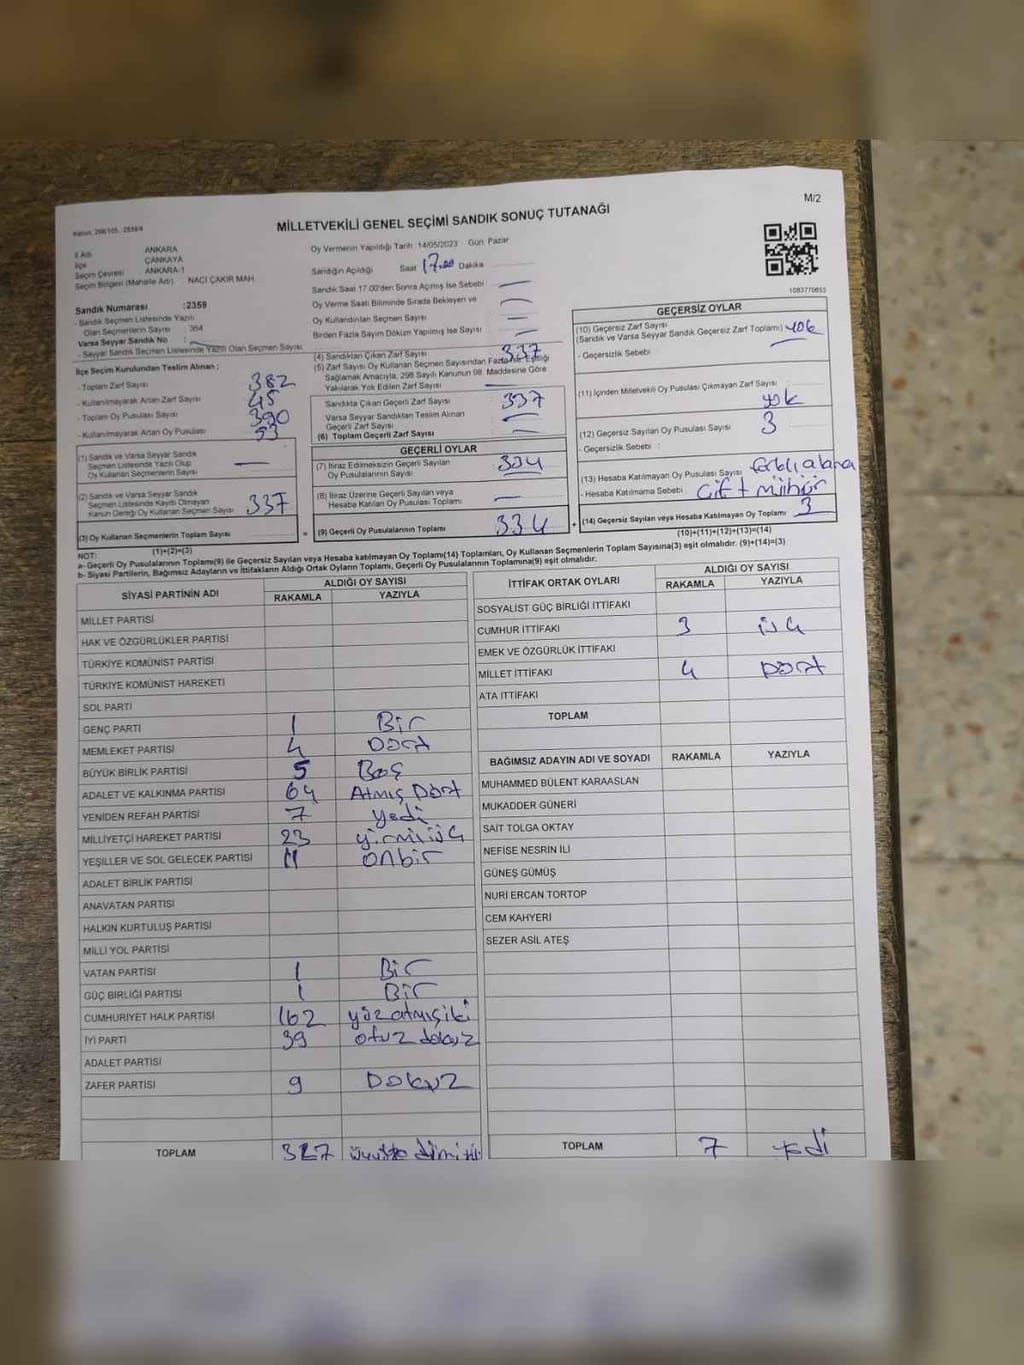 M/2
MİLLETVEKİLİ GENEL SEÇİMİ SANDIK SONUÇ TUTANAĞI
İl Adı ANKARA
İlçe ÇANKAYA
Seçim Çevresi ANKARA-1
Seçim Bölgesi (Mahalle Adı) NACİ ÇAKIR MAH.
Sandık Numarası :2359
- Sandık Seçmen Listesinde Yazılı
Olan Seçmenlerin Sayısı : 364
Varsa Seyyar Sandık No :
- Seyyar Sandık Seçmen Listesinde Yazılı Olan Seçmen Sayısı
İlçe Seçim Kurulundan Teslim Alınan :
- Toplam Zarf Sayısı 382
- Kullanılmayarak Artan Zarf Sayısı 45
- Toplam Oy Pusulası Sayısı 390
- Kullanılmayarak Artan Oy Pusulası 53
(1) Sandık ve Varsa Seyyar Sandık
Seçmen Listesinde Yazılı Olup
Oy Kullanan Seçmenlerin Sayısı —
(2) Sandık ve Varsa Seyyar Sandık
Seçmen Listesinde Kayıtlı Olmayan
Kanun Gereği Oy Kullanan Seçmen Sayısı 337
(3) Oy Kullanan Seçmenlerin Toplam Sayısı
(1)+(2)=(3)
Oy Vermenin Yapıldığı Tarih 14/05/2023 Gün Pazar
Sandığın Açıldığı Saat 17.00 Dakika
Sandık Saat 17.00'den Sonra Açılmış İse Sebebi —
Oy Verme Saati Bitiminde Sırada Bekleyen ve
Oy Kullandırılan Seçmen Sayısı —
Birden Fazla Sayım Döküm Yapılmış İse Sayısı —
(4) Sandıktan Çıkan Zarf Sayısı 337
(5) Zarf Sayısı Oy Kullanan Seçmen Sayısından Fazla İse, Eşitliği
Sağlamak Amacıyla, 298 Sayılı Kanunun 98. Maddesine Göre
Yakılarak Yok Edilen Zarf Sayısı —
Sandıkta Çıkan Geçerli Zarf Sayısı 337
Varsa Seyyar Sandıktan Teslim Alınan
Geçerli Zarf Sayısı —
(6) Toplam Geçerli Zarf Sayısı —
GEÇERLİ OYLAR
(7) İtiraz Edilmeksizin Geçerli Sayılan
Oy Pusulalarının Sayısı 334
(8) İtiraz Üzerine Geçerli Sayılan veya
Hesaba Katılan Oy Pusulası Toplamı —
= (9) Geçerli Oy Pusulalarının Toplamı 334 +
GEÇERSİZ OYLAR
(10) Geçersiz Zarf Sayısı
(Sandık ve Varsa Seyyar Sandık Geçersiz Zarf Toplamı) yok
- Geçersizlik Sebebi
(11) İçinden Milletvekili Oy Pusulası Çıkmayan Zarf Sayısı
yok
(12) Geçersiz Sayılan Oy Pusulası Sayısı 3
- Geçersizlik Sebebi :
(13) Hesaba Katılmayan Oy Pusulası Sayısı farklı alana
- Hesaba Katılmama Sebebi çift mühür
(14) Geçersiz Sayılan veya Hesaba Katılmayan Oy Toplamı 3
(10)+(11)+(12)+(13)=(14)
1083770653
NOT:
a- Geçerli Oy Pusulalarının Toplamı(9) ile Geçersiz Sayılan veya Hesaba katılmayan Oy Toplamı(14) Toplamları, Oy Kullanan Seçmenlerin Toplam Sayısına(3) eşit olmalıdır. (9)+(14)=(3)
b- Siyasi Partilerin, Bağımsız Adayların ve İttifakların Aldığı Ortak Oyların Toplamı, Geçerli Oy Pusulalarının Toplamına(9) eşit olmalıdır.
SİYASİ PARTİNİN ADI ALDIĞI OY SAYISI
RAKAMLA YAZIYLA
MİLLET PARTİSİ
HAK VE ÖZGÜRLÜKLER PARTİSİ
TÜRKİYE KOMÜNİST PARTİSİ
TÜRKİYE KOMÜNİST HAREKETİ
SOL PARTİ
GENÇ PARTİ 1 Bir
MEMLEKET PARTİSİ 4 Dört
BÜYÜK BİRLİK PARTİSİ 5 Beş
ADALET VE KALKINMA PARTİSİ 64 Atmış Dört
YENİDEN REFAH PARTİSİ 7 yedi
MİLLİYETÇİ HAREKET PARTİSİ 23 yirmi üç
YEŞİLLER VE SOL GELECEK PARTİSİ 11 onbir
ADALET BİRLİK PARTİSİ
ANAVATAN PARTİSİ
HALKIN KURTULUŞ PARTİSİ
MİLLİ YOL PARTİSİ
VATAN PARTİSİ 1 Bir
GÜÇ BİRLİĞİ PARTİSİ 1 Bir
CUMHURİYET HALK PARTİSİ 162 yüz atmış iki
İYİ PARTİ 39 otuz dokuz
ADALET PARTİSİ
ZAFER PARTİSİ 9 Dokuz
TOPLAM 327
İTTİFAK ORTAK OYLARI ALDIĞI OY SAYISI
RAKAMLA YAZIYLA
SOSYALİST GÜÇ BİRLİĞİ İTTİFAKI
CUMHUR İTTİFAKI 3 üç
EMEK VE ÖZGÜRLÜK İTTİFAKI
MİLLET İTTİFAKI 4 Dört
ATA İTTİFAKI
TOPLAM
BAĞIMSIZ ADAYIN ADI VE SOYADI RAKAMLA YAZIYLA
MUHAMMED BÜLENT KARAASLAN
MUKADDER GÜNERİ
SAİT TOLGA OKTAY
NEFİSE NESRİN İLİ
GÜNEŞ GÜMÜŞ
NURİ ERCAN TORTOP
CEM KAHYERİ
SEZER ASİL ATEŞ
TOPLAM 7 yedi